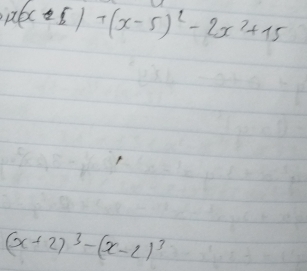 x(x + 5) + (x - 5)² - 2x² + 15
(x + 2)³ - (x - 2)³